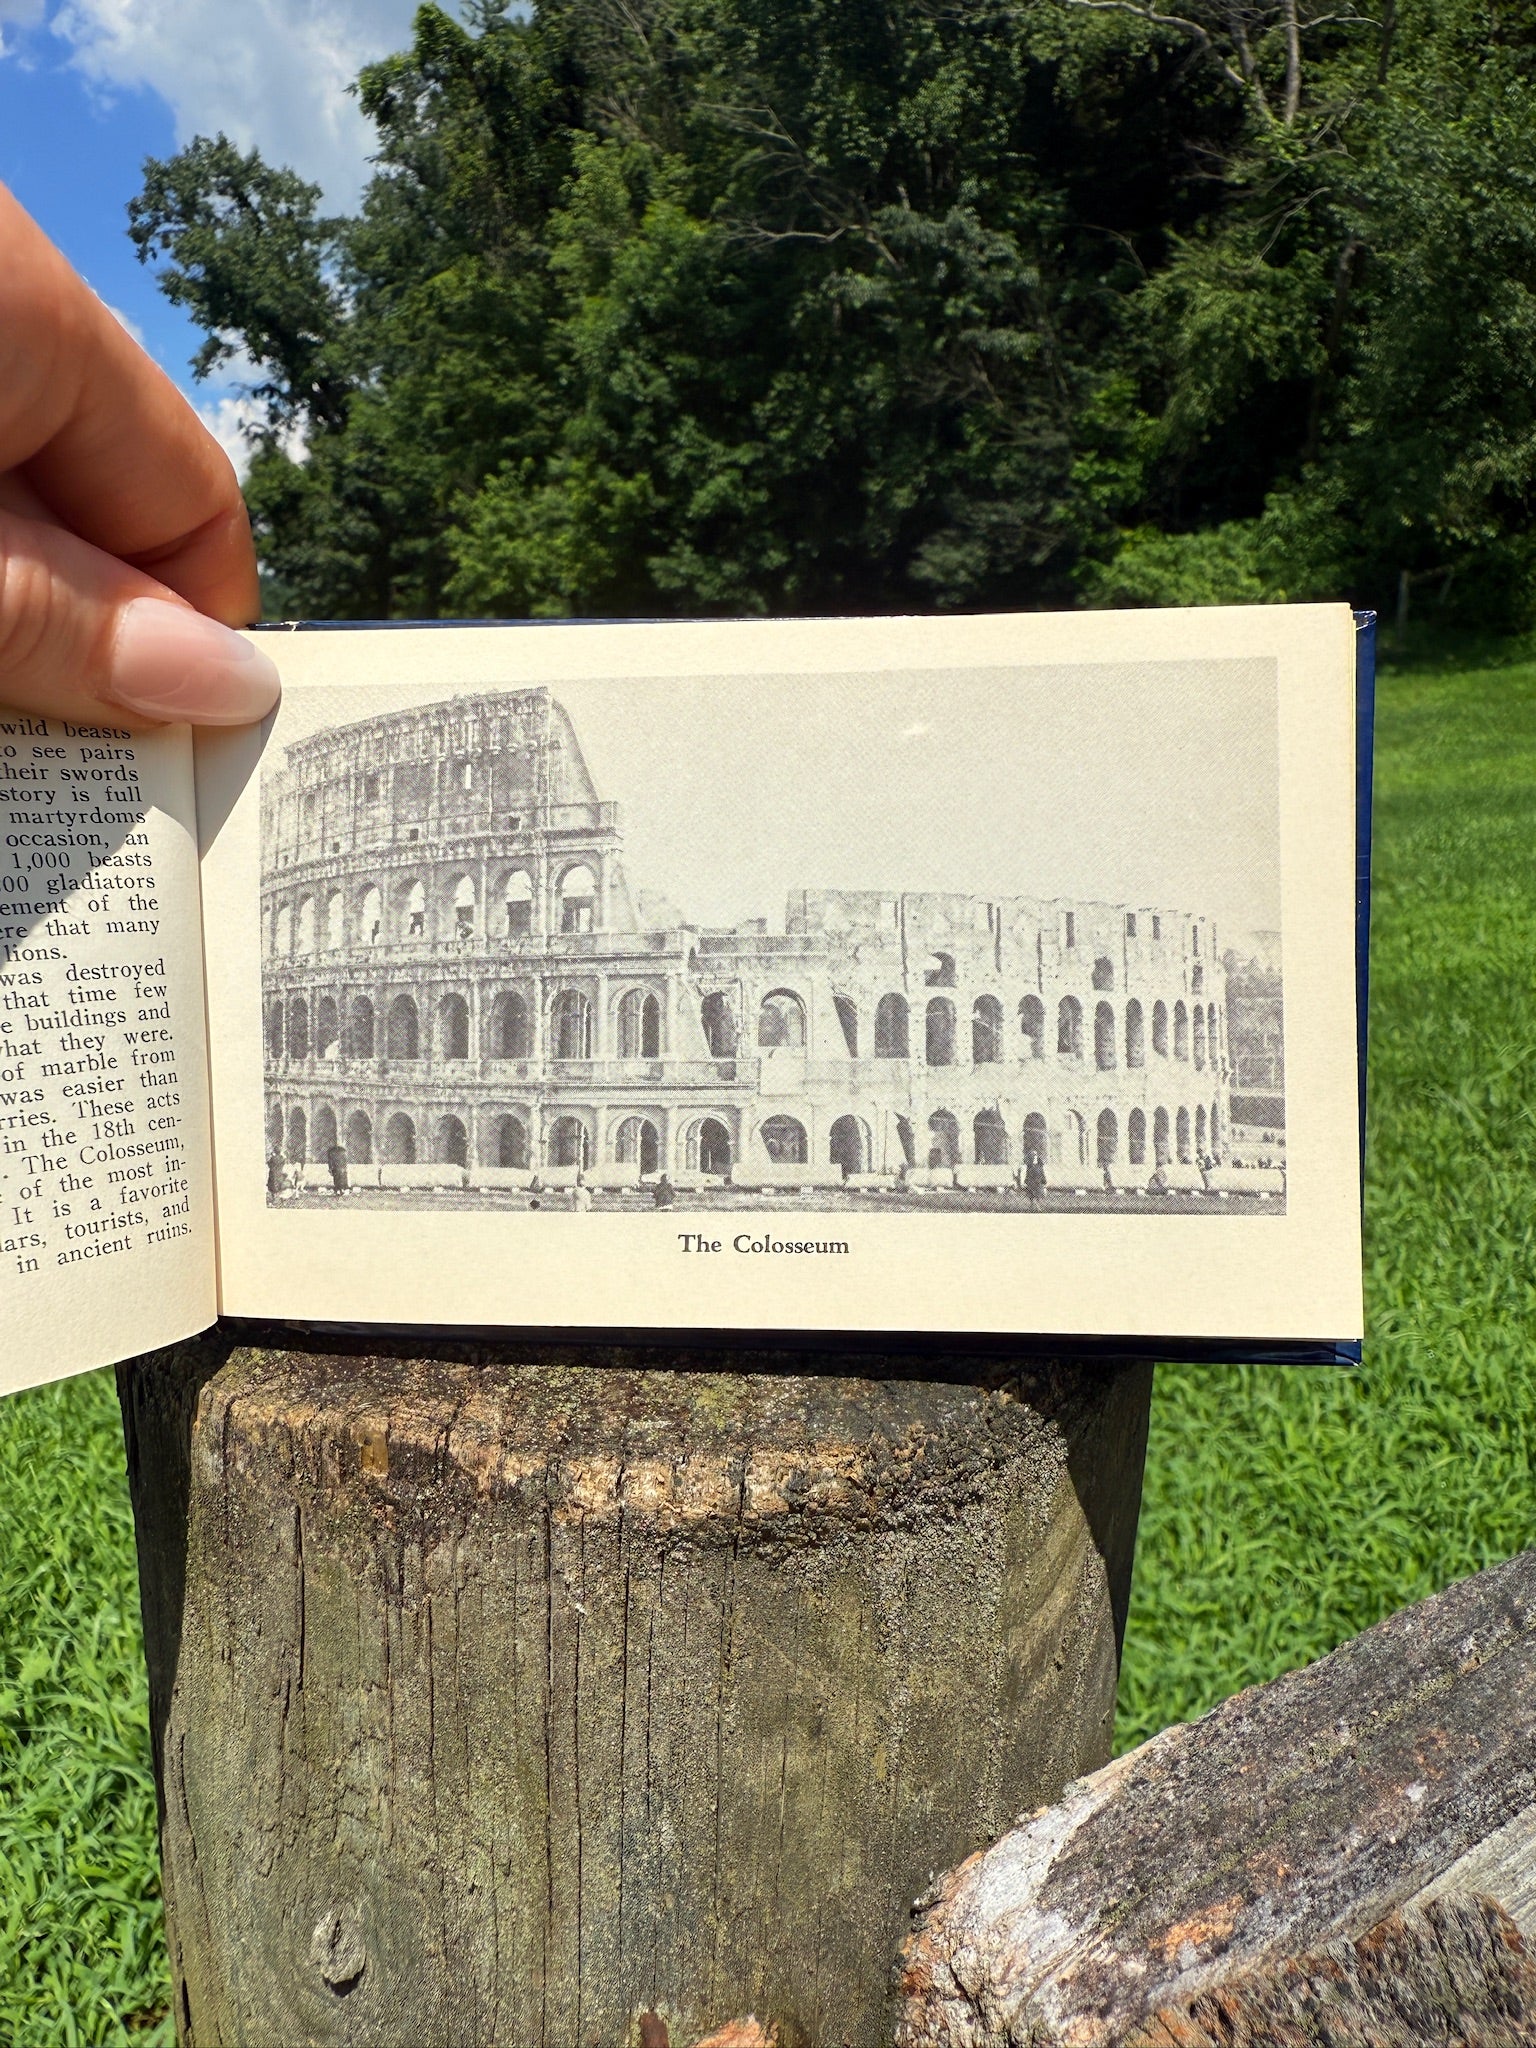 wild beasts
to see pairs
their swords
story is full
martyrdoms
occasion, an
1,000 beasts
gladiators
of the
that many
lions.
was destroyed
that time few
buildings and
what they were.
of marble from
was easier than
These acts
in the 18th cen-
. The Colosseum,
of the most in-
It is a favorite
tourists, and
in ancient ruins.
The Colosseum